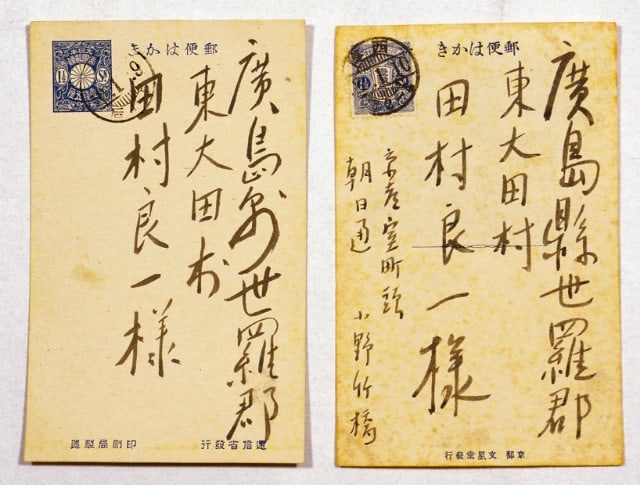 郵便はかき
1½
廣島县世羅郡
東大田村
田村良一様
逓信省發行
印刷局製造
郵便はかき
廣島縣世羅郡
東大田村
田村良一様
京都室町頭
朝日通
小野竹橋
京都 文星堂發行